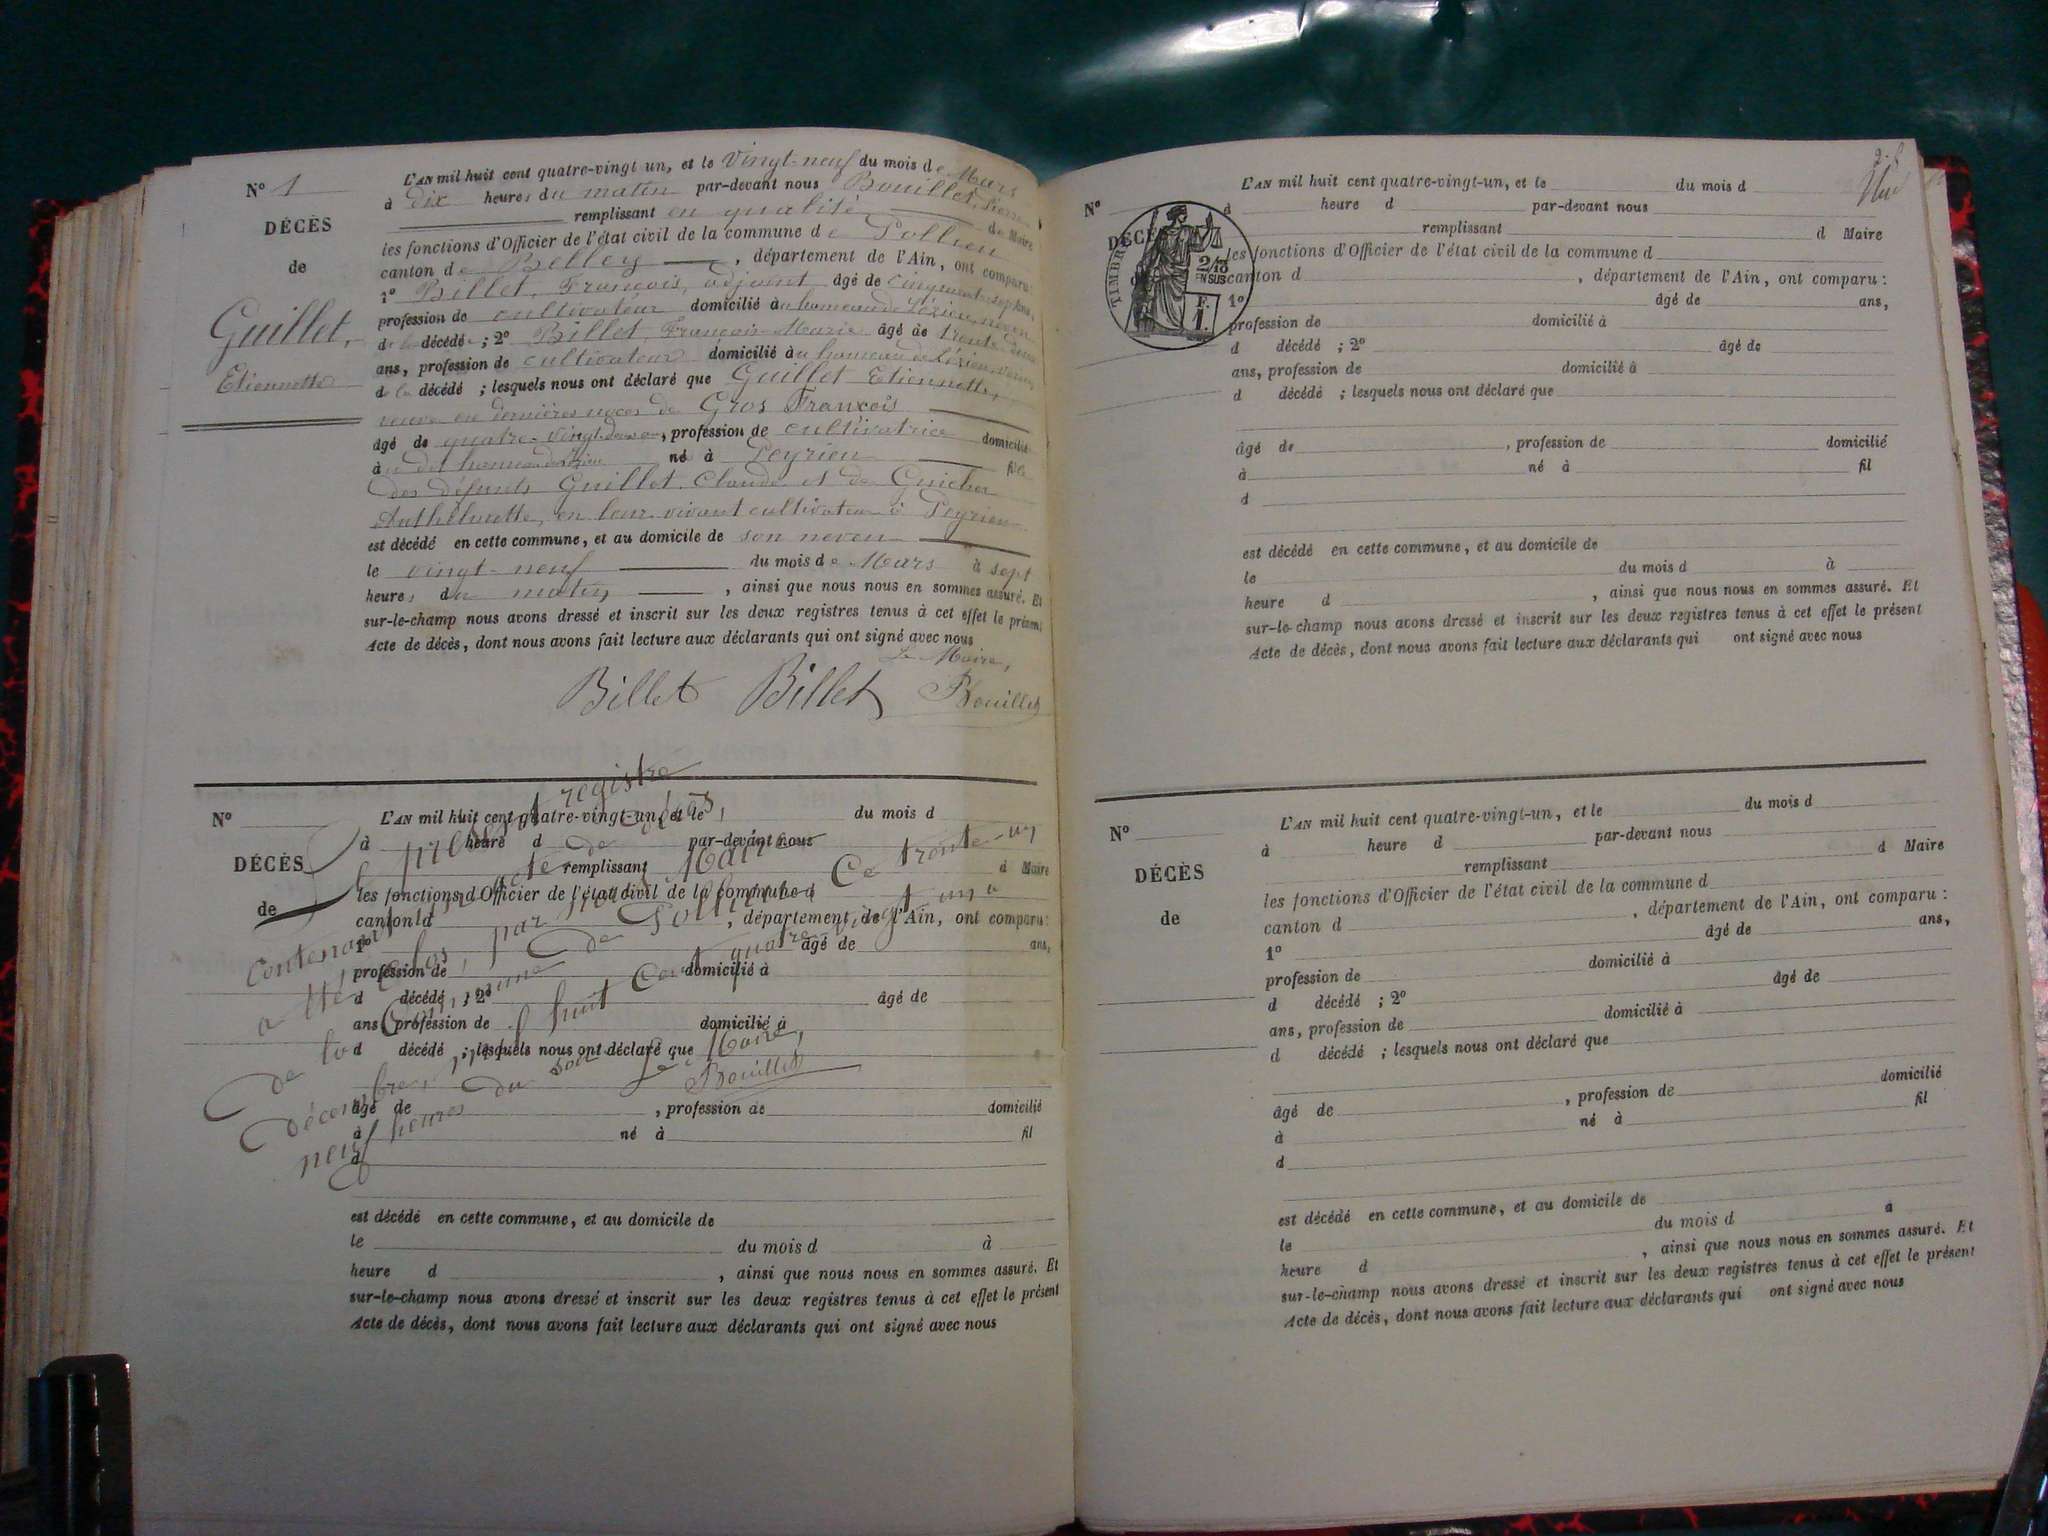 N° 1
DÉCÈS
de
Guillet,
Etiennette
L'AN mil huit cent quatre-vingt un, et le Vingt-neuf du mois de Mars
à dix heures du matin par-devant nous Bouillet, Pierre
remplissant en qualité de Maire
les fonctions d'Officier de l'état civil de la commune de Pollieu
canton de Belley, département de l'Ain, ont comparu:
1° Billet, François, adjoint âgé de cinquante-sept ans,
profession de cultivateur domicilié au hameau de Lézieu, neveu
de la décédée; 2° Billet, François-Marie âgé de trente-deux
ans, profession de cultivateur domicilié au hameau de Lézieu, neveu
de la décédé ; lesquels nous ont déclaré que Guillet Etiennette,
veuve en dernières noces de Gros François
âgé de quatre-vingt-deux ans, profession de cultivatrice domicilié
à né à Peyrieu fille
des défunts Guillet, Claude et de Guicher
Anthelmette, en leur vivant cultivateurs à Peyrieu
est décédé en cette commune, et au domicile de son neveu
le vingt-neuf du mois de Mars à sept
heures du matin, ainsi que nous nous en sommes assuré. Et
sur-le-champ nous avons dressé et inscrit sur les deux registres tenus à cet effet le présent
Acte de décès, dont nous avons fait lecture aux déclarants qui ont signé avec nous
Le Maire,
Billet Billet Bouillet
N°
DÉCÈS
de
L'AN mil huit cent quatre-vingt-un, et le du mois d
à heure d par-devant nous
remplissant d Maire
les fonctions d'Officier de l'état civil de la commune d
canton d , département de l'Ain, ont comparu:
1° âgé de ans,
profession de domicilié à
d décédé ; 2° âgé de
ans, profession de domicilié à
d décédé ; lesquels nous ont déclaré que
âgé de , profession de domicilié
à né à fil
d
est décédé en cette commune, et au domicile de
le du mois d à
heure d , ainsi que nous nous en sommes assuré. Et
sur-le-champ nous avons dressé et inscrit sur les deux registres tenus à cet effet le présent
Acte de décès, dont nous avons fait lecture aux déclarants qui ont signé avec nous
Le présent registre
contenant acte de décès,
a été clos, par nous Maire
de la Commune de Pollieu Ce trente-un
décembre mil huit cent quatre-vingt-un à
neuf heures du soir Le Maire,
Bouillet
N°
DÉCÈS
TIMBRE
2/10
EN SUS
L'AN mil huit cent quatre-vingt-un, et le du mois d
à heure d par-devant nous
remplissant d Maire
les fonctions d'Officier de l'état civil de la commune d
canton d , département de l'Ain, ont comparu :
1° âgé de ans,
profession de domicilié à
d décédé ; 2° âgé de
ans, profession de domicilié à
d décédé ; lesquels nous ont déclaré que
âgé de , profession de domicilié
à né à fil
d
est décédé en cette commune, et au domicile de
le du mois d à
heure d , ainsi que nous nous en sommes assuré. Et
sur-le-champ nous avons dressé et inscrit sur les deux registres tenus à cet effet le présent
Acte de décès, dont nous avons fait lecture aux déclarants qui ont signé avec nous
N°
DÉCÈS
de
L'AN mil huit cent quatre-vingt-un, et le du mois d
à heure d par-devant nous
remplissant d Maire
les fonctions d'Officier de l'état civil de la commune d
canton d , département de l'Ain, ont comparu :
1° âgé de ans,
profession de domicilié à
d décédé ; 2° âgé de
ans, profession de domicilié à
d décédé ; lesquels nous ont déclaré que
âgé de , profession de domicilié
à né à fil
d
est décédé en cette commune, et au domicile de
le du mois d à
heure d , ainsi que nous nous en sommes assuré. Et
sur-le-champ nous avons dressé et inscrit sur les deux registres tenus à cet effet le présent
Acte de décès, dont nous avons fait lecture aux déclarants qui ont signé avec nous